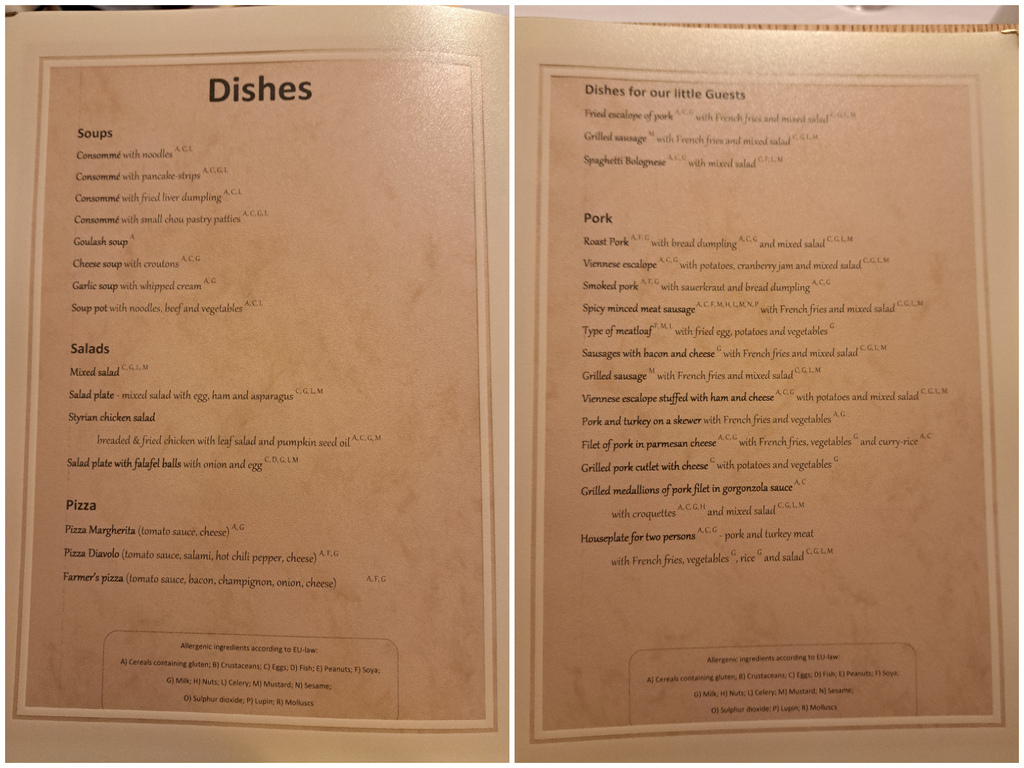 Dishes
Soups
Consommé with noodles A, C, L
Consommé with pancake-strips A, C, G, L
Consommé with fried liver dumpling A, C, L
Consommé with small chou pastry patties A, C, G, L
Goulash soup A
Cheese soup with croutons A, C, G
Garlic soup with whipped cream A, G
Soup pot with noodles, beef and vegetables A, C, L
Salads
Mixed salad C, G, L, M
Salad plate - mixed salad with egg, ham and asparagus C, G, L, M
Styrian chicken salad
breaded & fried chicken with leaf salad and pumpkin seed oil A, C, G, M
Salad plate with falafel balls with onion and egg C, D, G, L M
Pizza
Pizza Margherita (tomato sauce, cheese) A, G
Pizza Diavolo (tomato sauce, salami, hot chili pepper, cheese) A, F, G
Farmer's pizza (tomato sauce, bacon, champignon, onion, cheese) A, F, G
Allergenic ingredients according to EU-law:
A) Cereals containing gluten; B) Crustaceans; C) Eggs; D) Fish; E) Peanuts; F) Soya;
G) Milk; H) Nuts; L) Celery; M) Mustard; N) Sesame;
O) Sulphur dioxide; P) Lupin; R) Molluscs
Dishes for our little Guests
Fried escalope of pork A, C, G with French fries and mixed salad C, G, L, M
Grilled sausage M with French fries and mixed salad C, G, L, M
Spaghetti Bolognese A, C, G with mixed salad C, F, L, M
Pork
Roast Pork A, F, G with bread dumpling A, C, G and mixed salad C, G, L, M
Viennese escalope A, C, G with potatoes, cranberry jam and mixed salad C, G, L, M
Smoked pork A, F, G with sauerkraut and bread dumpling A, C, G
Spicy minced meat sausage A, C, F, M, H, L, M, N, P with French fries and mixed salad C, G, L, M
Type of meatloaf F, M, L with fried egg, potatoes and vegetables G
Sausages with bacon and cheese G with French fries and mixed salad C, G, L, M
Grilled sausage M with French fries and mixed salad C, G, L, M
Viennese escalope stuffed with ham and cheese A, C, G with potatoes and mixed salad C, G, L, M
Pork and turkey on a skewer with French fries and vegetables A, G
Filet of pork in parmesan cheese A, C, G with French fries, vegetables G and curry-rice A, C
Grilled pork cutlet with cheese G with potatoes and vegetables G
Grilled medallions of pork filet in gorgonzola sauce A, C
with croquettes A, C, G, H and mixed salad C, G, L, M
Houseplate for two persons A, C, G - pork and turkey meat
with French fries, vegetables G, rice G and salad C, G, L, M
Allergenic ingredients according to EU-law:
A) Cereals containing gluten; B) Crustaceans; C) Eggs; D) Fish; E) Peanuts; F) Soya;
G) Milk; H) Nuts; L) Celery; M) Mustard; N) Sesame;
O) Sulphur dioxide; P) Lupin; R) Molluscs